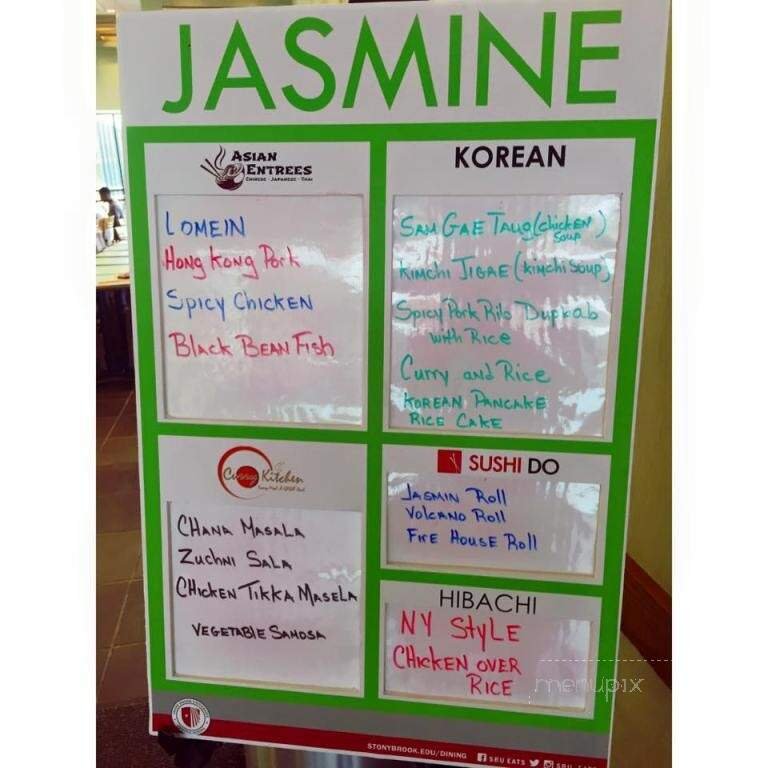 JASMINE
ASIAN
ENTREES
CHINESE · JAPANESE · THAI
LOMEIN
HONG KONG PORK
SPICY CHICKEN
BLACK BEAN FISH
KOREAN
SAM GAE TAUG (CHICKEN SOUP)
KIMCHI JIGAE (KIMCHI SOUP)
SPICY PORK RIB DUPKAB
WITH RICE
CURRY AND RICE
KOREAN PANCAKE
RICE CAKE
Kitchen
CHANA MASALA
ZUCHNI SALA
CHICKEN TIKKA MASELA
VEGETABLE SAMOSA
SUSHI DO
JASMIN ROLL
VOLCANO ROLL
FIRE HOUSE ROLL
HIBACHI
NY STYLE
CHICKEN OVER
RICE
menupix
STONYBROOK.EDU/DINING SBU EATS SBU_EATS